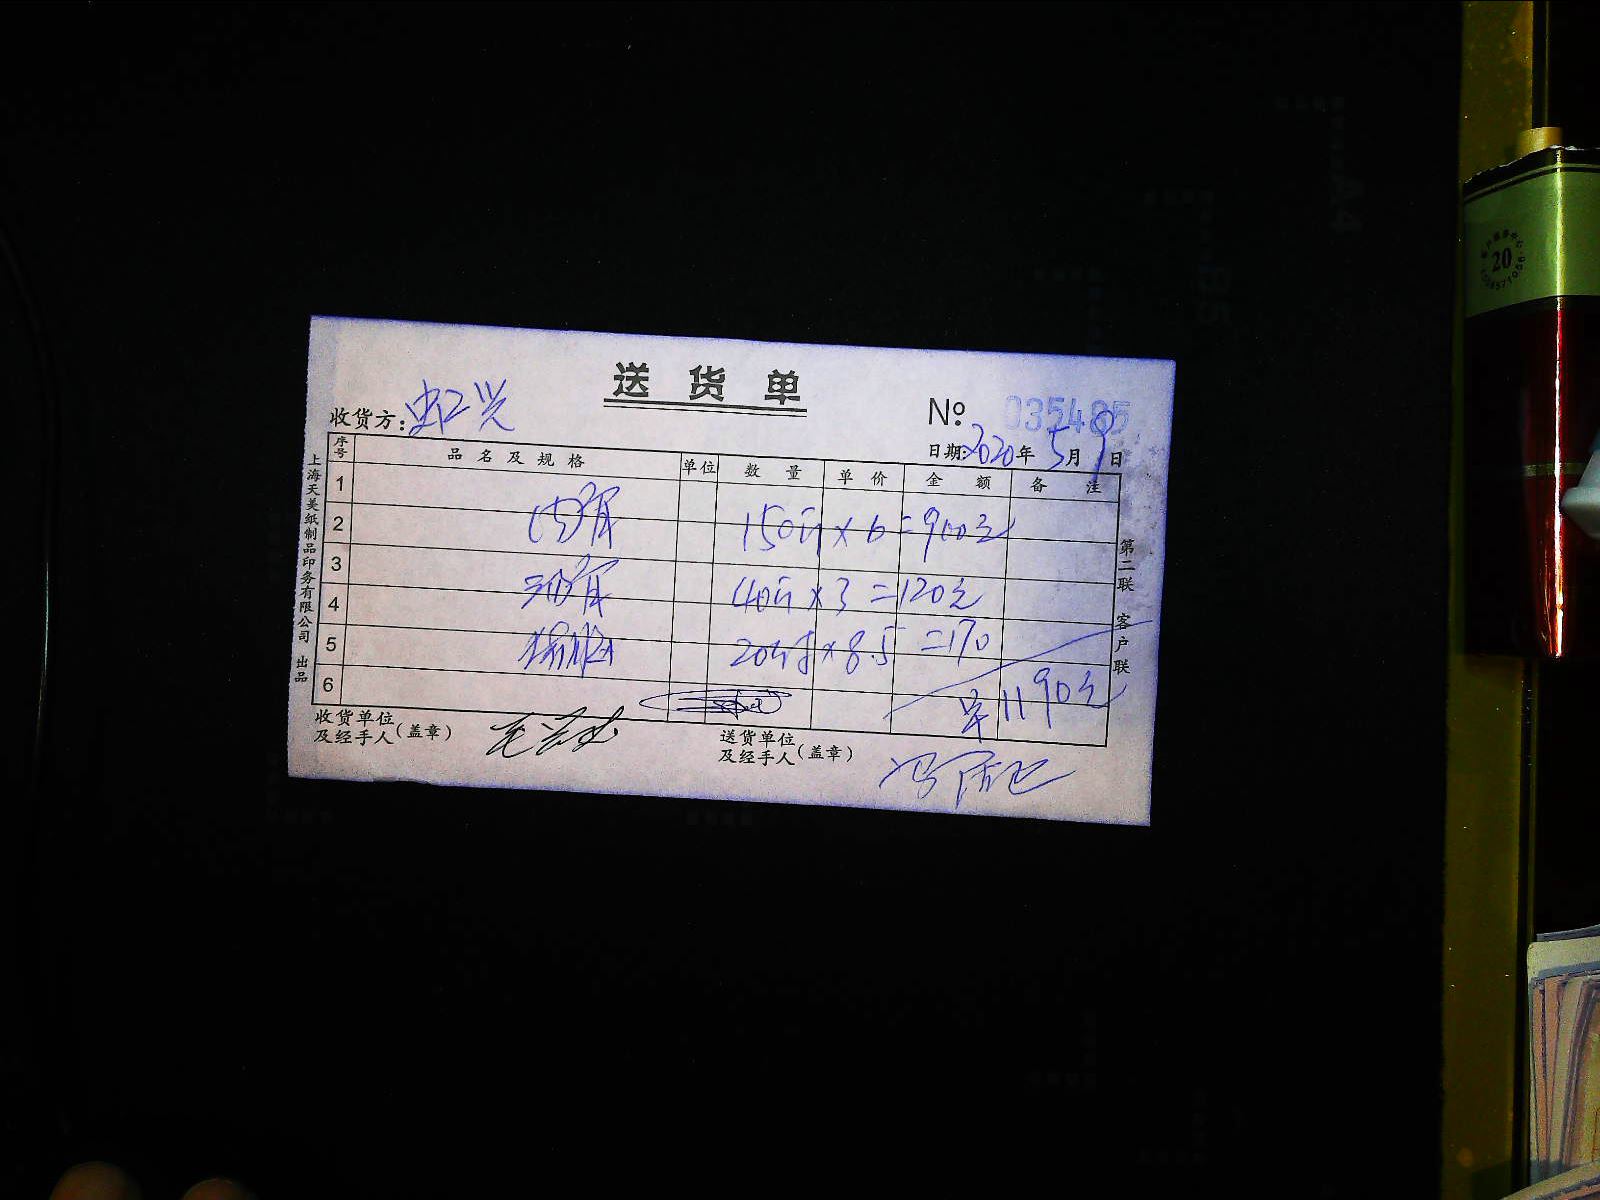 送货单
收货方:虹兴
№ 035485
日期:2020年5月9日
序号 品名及规格 单位 数量 单价 金额 备注
1
2 150斤×6=900元
3
4 40斤×3=120元
5 20斤×8.5=170
6 1190元
收货单位及经手人(盖章)
送货单位及经手人(盖章)
上海天美纸制品印务有限公司 出品
第二联 客户联
20